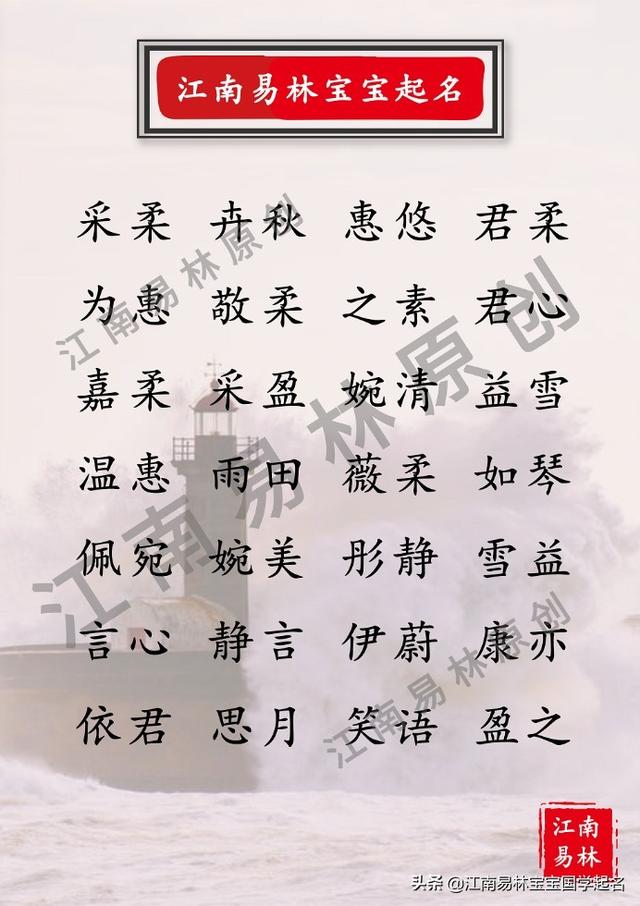 江南易林宝宝起名
采柔 卉秋 惠悠 君柔
为惠 敬柔 之素 君心
嘉柔 采盈 婉清 益雪
温惠 雨田 薇柔 如琴
佩宛 婉美 彤静 雪益
言心 静言 伊蔚 康亦
依君 思月 笑语 盈之
江南易林原创
江南易林原创
江南易林原创
江南
易林
头条 @江南易林宝宝国学起名